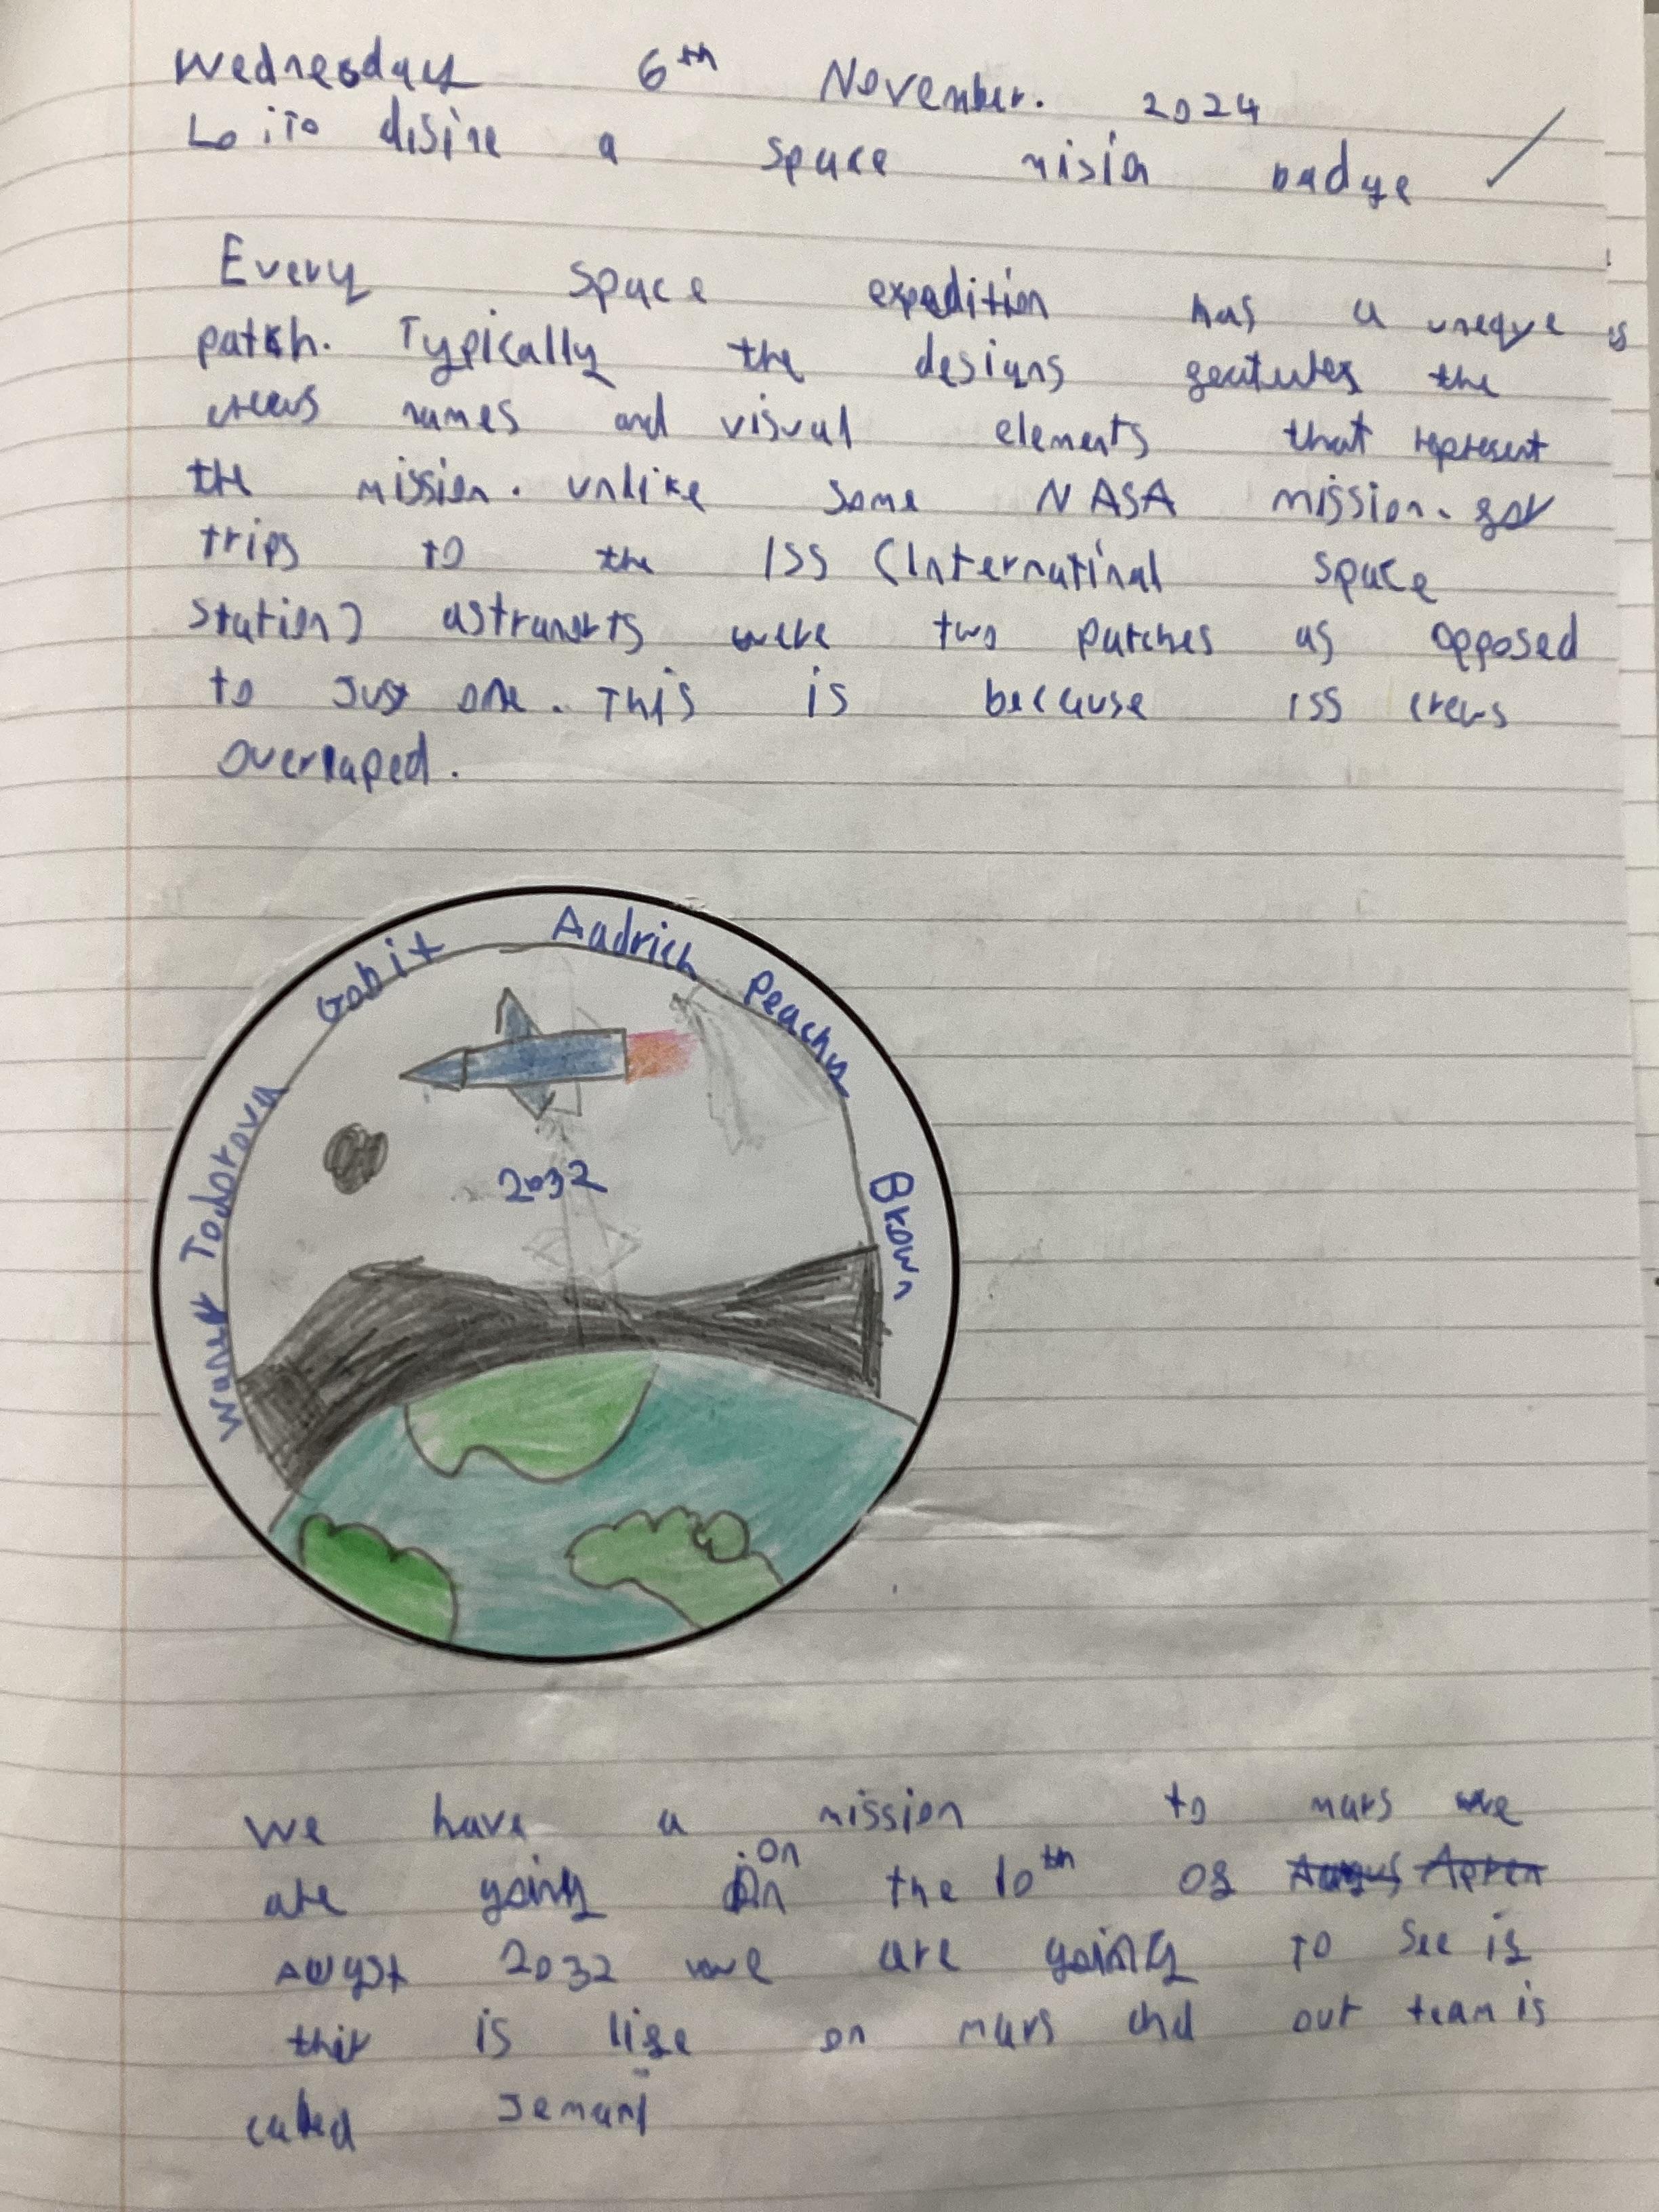 Wednesday 6th November. 2024
Lo: To disine a space misin badge
Every space expedition has a uneqye is
patch. Typically the designs featutes the
crews names and visual elements that represent
the mission. unlike some NASA mission. for
trips to the ISS (Internatinal space
station) astranorts were two patches as opposed
to Just one. This is because ISS crews
overlaped.
Todorova Gobit Aadrich Peachy Brown
2032
We have a mission to mars we
are going on the 10th of
August 2032 we are going to see if
thir is life on mars and out team is
called Jemani